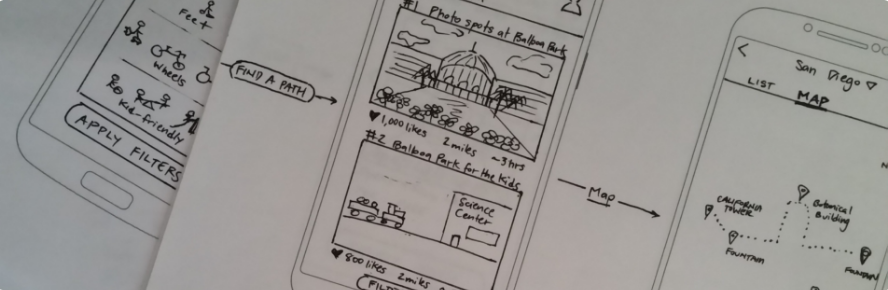 Feet
Wheels
Kid-friendly
APPLY FILTERS
FIND A PATH
#1 Photo spots at Balboa Park
1,000 likes 2 miles ~3 hrs
#2 Balboa Park for the Kids
Science
Center
800 likes 2 miles
Map
San Diego
LIST MAP
CALIFORNIA
TOWER
Botanical
Building
FOUNTAIN
FOUNTAIN